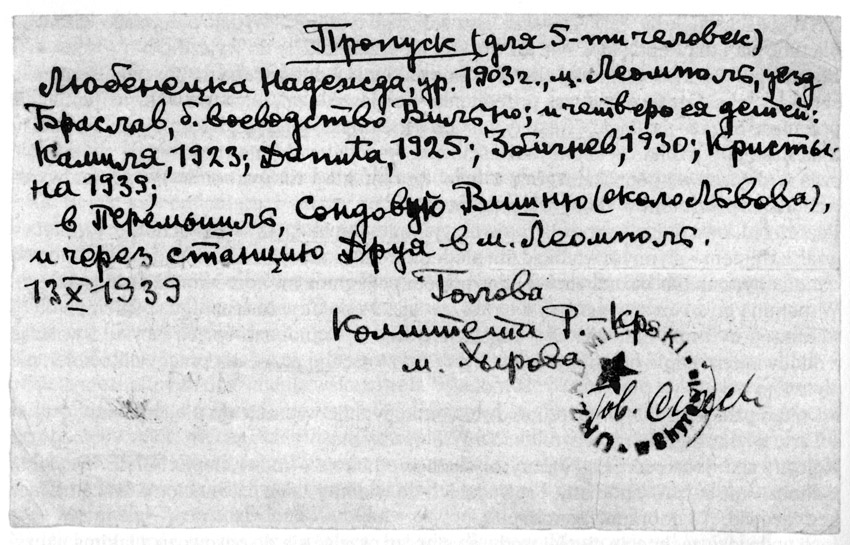 Пропуск (для 5-ти человек)
Любенецка Надежда, ур. 1903г., м. Леомполь, уезд
Браслав, б. воеводство Вильно; и четверо ея детей:
Камиля 1923; Danuta, 1925; Збигнев, 1930; Кристы-
на 1939;
в Перемышль, Сондовую Вишню (около Львова),
и через станцию Друя в м. Леомполь.
13 X 1939
Голова
Комитета Р.
м. Хырова
URZĄD MIEJSKI